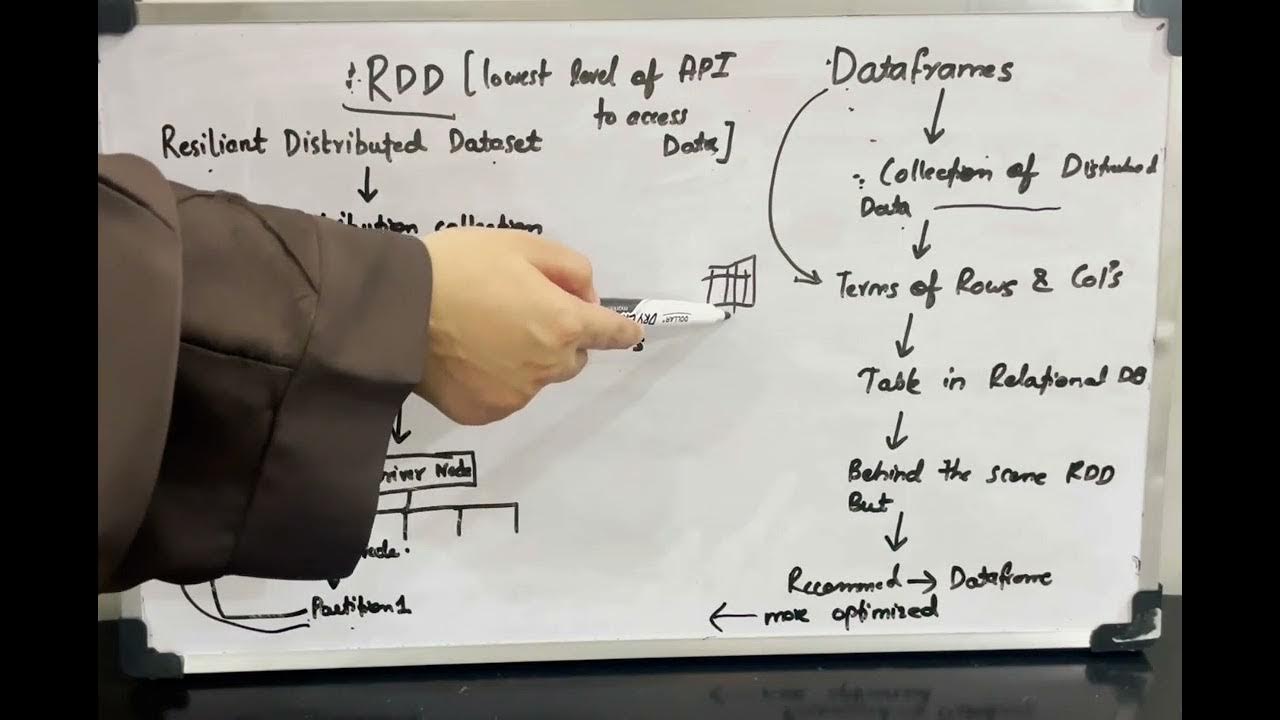 RDD [lowest level of API
to access
Data]
Resiliant Distributed Dataset
collection
Driver Node
Node.
Partition 1
DOLLAR
DRY
Dataframes
Collection of Distributed
Data
Terms of Rows & Col's
Table in Relational DB
Behind the scene RDD
But
Recommed → Dataframe
← more optimized